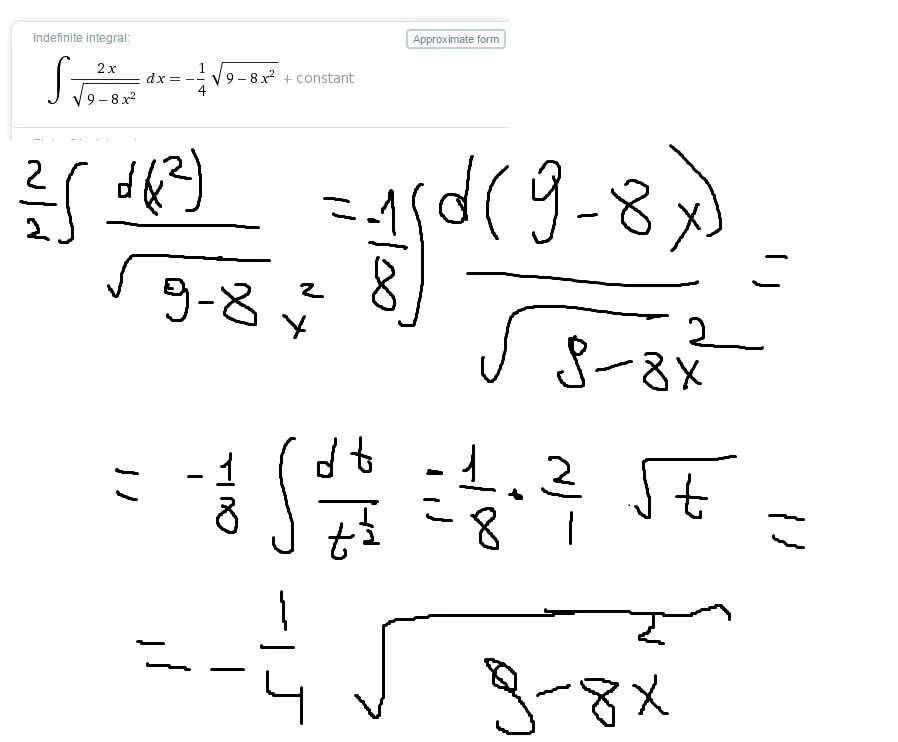 Indefinite integral:
Approximate form
∫ 2x/√(9 – 8x²) dx = –1/4 √(9 – 8x²) + constant
2/2 ∫ d(x²)/√(9–8x²) = –1/8 ∫ d(9–8x)/√(9–8x²) =
= –1/8 ∫ dt/t^(1/2) = –1/8 · 2/1 √t =
= –1/4 √(9–8x²)